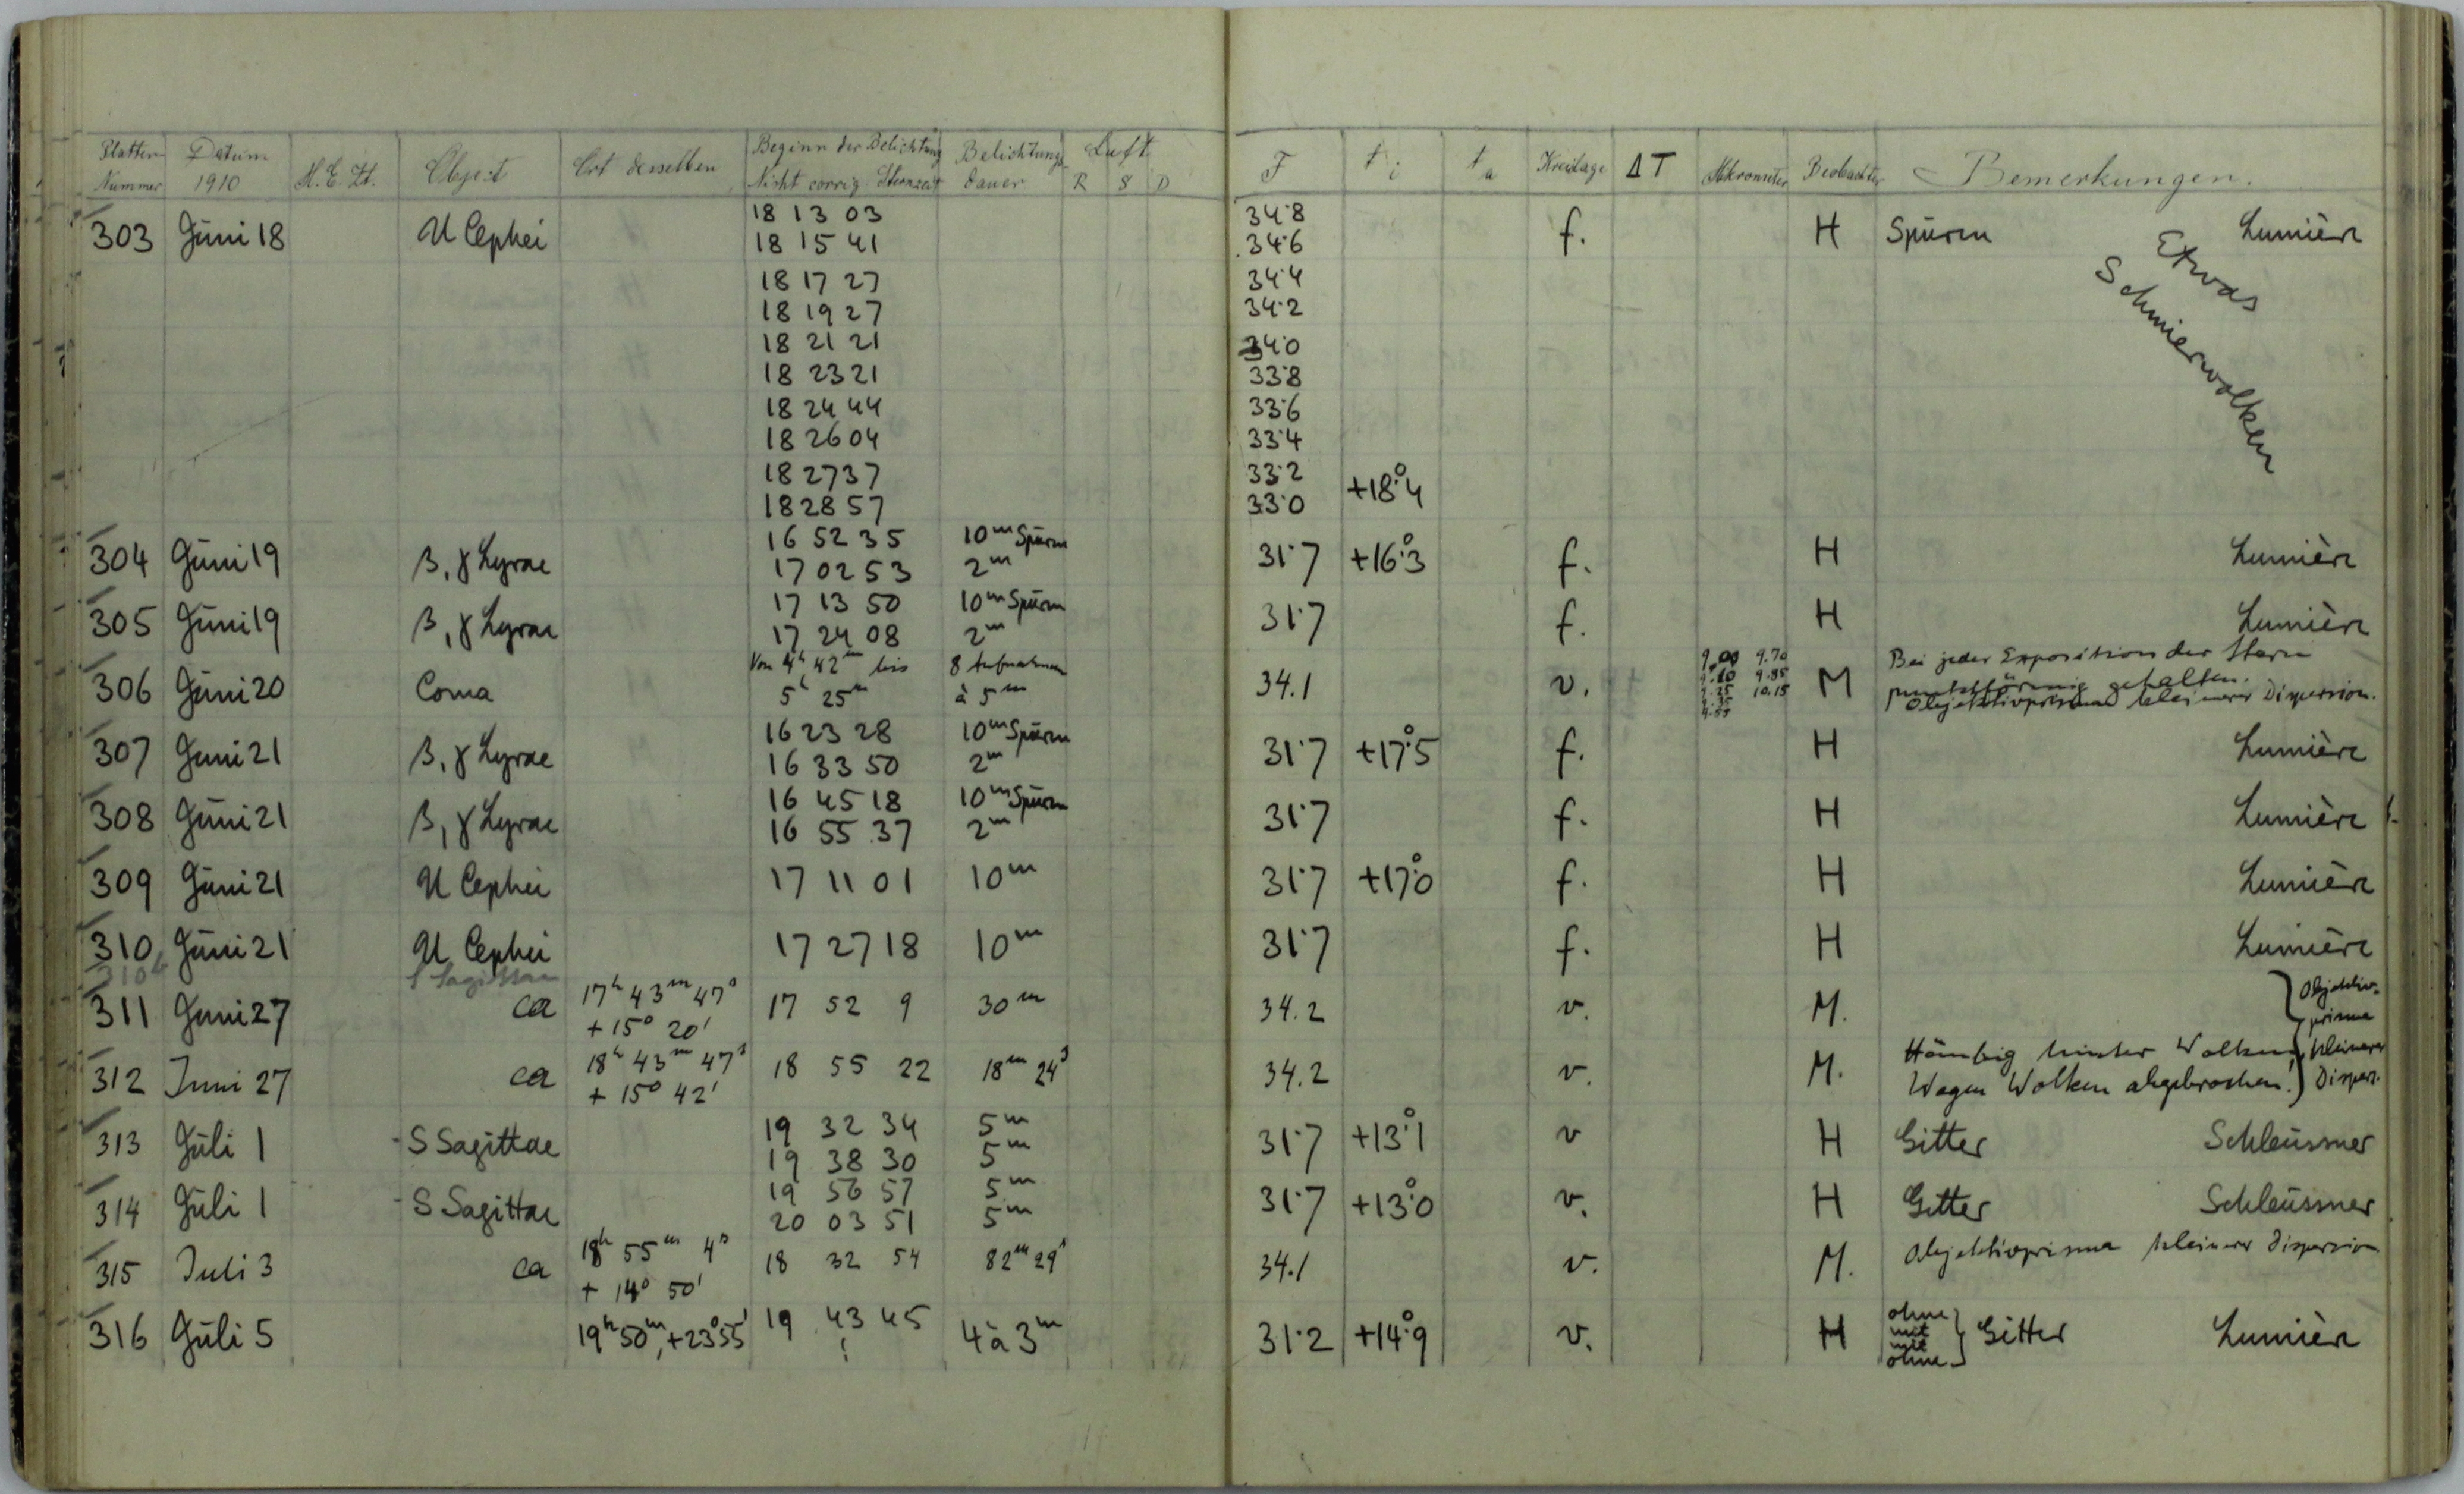 Platten Datum Beginn der Belichtung Belichtungs Luft
Nummer 1910 M. E. Zt. Object Ort desselben Nicht corrig. Sternzeit dauer R S D F t i t a Kreislage ΔT Mikrometer Beobachter Bemerkungen.
18 13 03 34.8
303 Jŭni 18 U Cephei 18 15 41 34.6 f. H Spŭren Lumière
Etwas
Schmierwolken
18 17 27 34.4
18 19 27 34.2
18 21 21 34.0
18 23 21 33.8
18 24 44 33.6
18 26 04 33.4
18 27 37 33.2
18 28 57 33.0 +18.°4
16 52 35 10m Spŭren
304 Jŭni 19 β, γ Lyrae 17 02 53 2m 31.7 +16.°3 f. H Lumière
17 13 50 10m Spŭren
305 Jŭni 19 β, γ Lyrae 17 24 08 2m 31.7 f. H Lumière
Von 4h 42m bis 8 Aufnahmen 9.00 9.70 Bei jeder Exposition der Stern
306 Jŭni 20 Coma 5h 25m à 5m 34.1 v. 9.85 M punktförmig gehalten.
9.25 10.15 Objektivprisma kleinerer Dispersion.
16 23 28 10m Spŭren
307 Juni 21 β, γ Lyrae 16 33 50 2m 31.7 +17.°5 f. H Lumière
16 45 18 10m Spŭren
308 Jŭni 21 β, γ Lyrae 16 55 37 2m 31.7 f. H Lumière
309 Jŭni 21 U Cephei 17 11 01 10m 31.7 +17.°0 f. H Lumière
310 Jŭni 21 U Cephei 17 27 18 10m 31.7 f. H Lumière
310b S Sagittae
17h 43m 47s Objektiv-
311 Juni 27 ca + 15° 20' 17 52 9 30m 34.2 v. M. prisma
18h 43m 47s Häufig hinter Wolken, kleinerer
312 Juni 27 ca + 15° 42' 18 55 22 18m 24s 34.2 v. M. Wegen Wolken abgebrochen! Dispers.
19 32 34 5m
313 Jŭli 1 S Sagittae 19 38 30 5m 31.7 +13.°1 v H Gitter Schleŭssner
19 56 57 5m
314 Jŭli 1 S Sagittae 20 03 51 5m 31.7 +13.°0 v. H Gitter Schleŭssner
18h 55m 4s
315 Juli 3 ca + 14° 50' 18 32 54 82m 29s 34.1 v. M. Objektivprisma kleinerer Dispersion
ohne
316 Jŭli 5 19h 50m, +23°55' 19 43 45 4 à 3m 31.2 +14.°9 v. H mit Gitter Lumière
mit
ohne